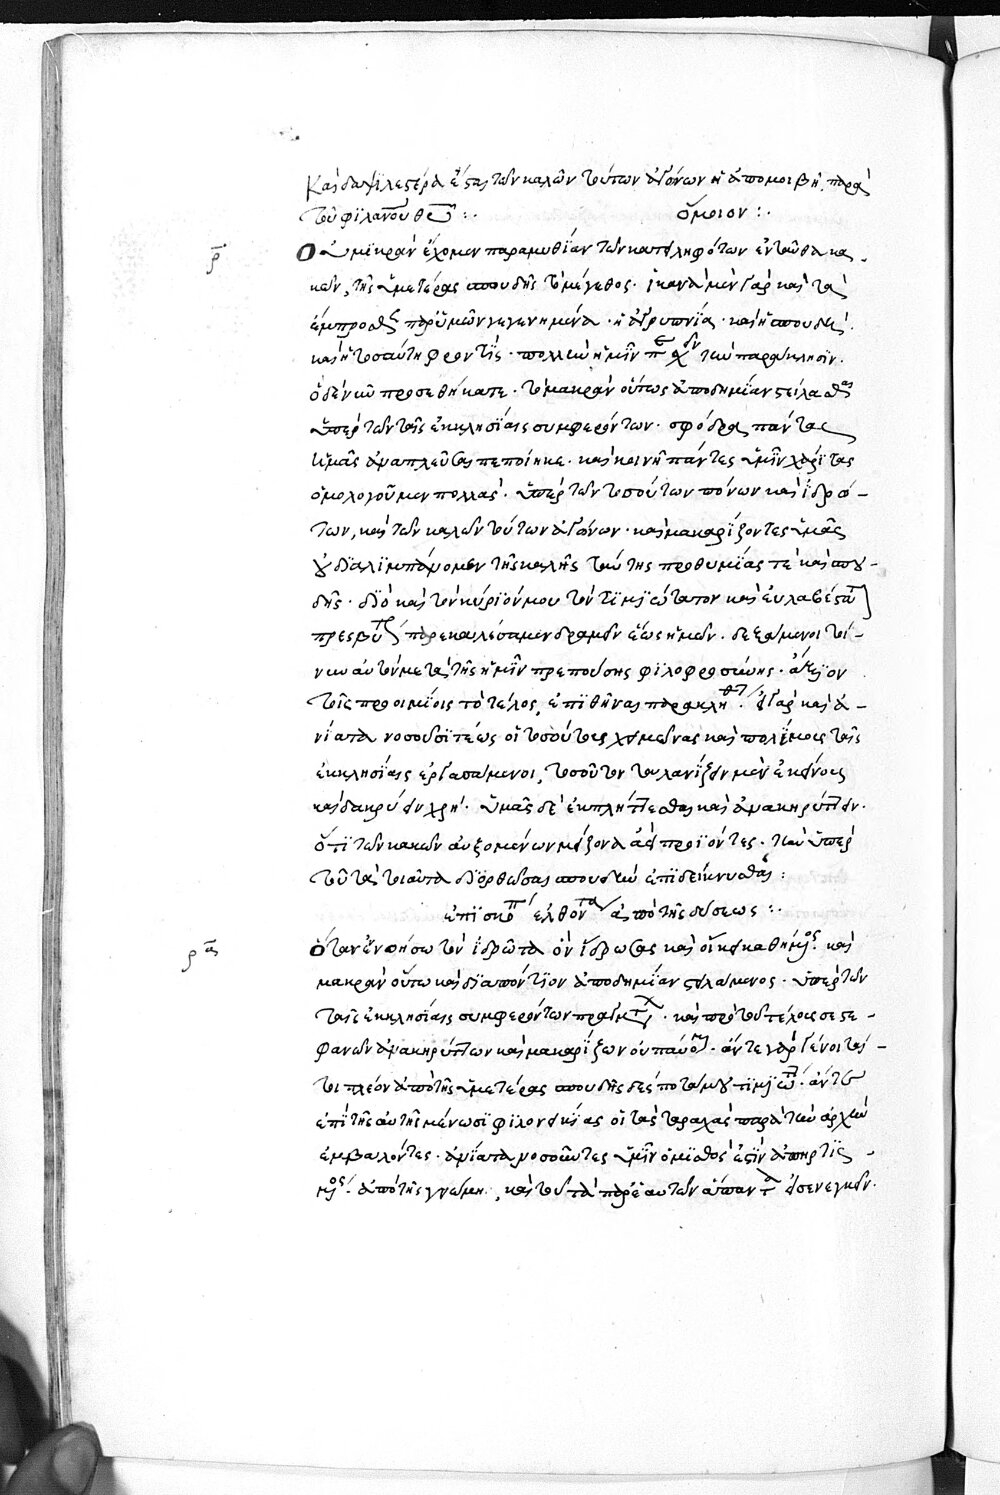 Καὶ δαψιλεστέρα ἔσται τῶν καλῶν τούτων ἀγώνων ἡ ἀπομοιβὴ παρὰ
τοῦ φιλανου θεοῦ :· ὅμοιον :·
ρ Οὐ μικρὰν ἔχομεν παραμυθίαν τῶν κατειληφότων ἐνταῦθα κα-
κῶν, τῆς ὑμετέρας σπουδῆς τὸ μέγεθος· ἱκανὰ μὲν γὰρ καὶ τὰ
ἔμπροσθεν παρ' ὑμῶν γεγενημένα· ἡ ἀγρυπνία· καὶ ἡ σπουδὴ·
καὶ ἡ τοσαύτη φροντὶς· πολλὴν ἡμῖν παρασχεῖν τὴν παράκλησιν·
ὃ δὲ νῦν προσεθήκατε· τὸ μακρὰν οὕτως ἀποδημίαν στείλασθαι
ὑπὲρ τῶν ταῖς ἐκκλησίαις συμφερόντων· σφόδρα πάντας
ἡμᾶς ἀναπλεῦσαι πεποίηκε· καὶ κοινῇ πάντες ὑμῖν χάριτας
ὁμολογοῦμεν πολλὰς· ὑπὲρ τῶν τοσούτων πόνων καὶ ἱδρώ-
των, καὶ τῶν καλῶν τούτων ἀγώνων· καὶ μακαρίζοντες ὑμᾶς
οὐ διαλιμπάνομεν τῆς καλῆς ταύτης προθυμίας τὲ καὶ σπου-
δῆς· διὸ καὶ τὸν κύριόν μου τὸν τιμιώτατον καὶ εὐλαβέστατον
πρεσβύτερον παρεκαλέσαμεν δραμεῖν ἕως ἡμῶν· δεξάμενοι τοί-
νυν αὐτὸν μετὰ τῆς ἡμῖν πρεπούσης φιλοφροσύνης· ἄξιον
τοῖς προοιμίοις τὸ τέλος, ἐπιθῆναι παρακλήθητε· εἰ γὰρ καὶ ἀ-
νίατα νοσοῦσι τέως οἱ τοσούτους χειμῶνας καὶ πολέμους ταῖς
ἐκκλησίαις ἐργασάμενοι, τοσοῦτον ταλανίζειν μὲν ἐκείνους
καὶ δακρύειν χρὴ· ὑμᾶς δὲ ἐκπλήττεσθαι καὶ ἀνακηρύττειν·
ὅτι τῶν κακῶν αὐξομένων μείζονα ἀεὶ προϊόντες· τὴν ὑπὲρ
τοῦ τὰ τοιαῦτα διορθῶσαι σπουδὴν ἐπιδείκνυσθαι :
ἐπισκόποις ἐλθοῦσιν ἀπὸ τῆς δύσεως :·
ρα Ὅταν ἐννοήσω τὸν ἱδρῶτα ὃν ἵδρωσας καὶ οἴκει καθήμενος· καὶ
μακρὰν οὕτω καὶ διαπόντιον ἀποδημίαν στειλάμενος· ὑπὲρ τῶν
ταῖς ἐκκλησίαις συμφερόντων πραγμάτων· καὶ πρὸ τοῦ τέλους σε στε-
φανῶν ἀνακηρύττων καὶ μακαρίζων οὐ παύομαι· ἄν τε γὰρ γένοιτό
τι πλέον ἀπὸ τῆς ὑμετέρας σπουδῆς δέσποτά μου τιμιώτατε· ἄν τε
ἐπὶ τῆς αὐτῆς μένωσι φιλονεικίας οἱ τὰς ταραχὰς παρὰ τὴν ἀρχὴν
ἐμβαλόντες· ἀνίατα νοσοῦντες ὑμῖν ὁ μισθὸς ἐστὶν ἀπηρτισ-
μένος· ἀπὸ τῆς γνώμης, καὶ τοῦ τὰ παρ' ἑαυτῶν ἅπαντα εἰσενεγκεῖν·